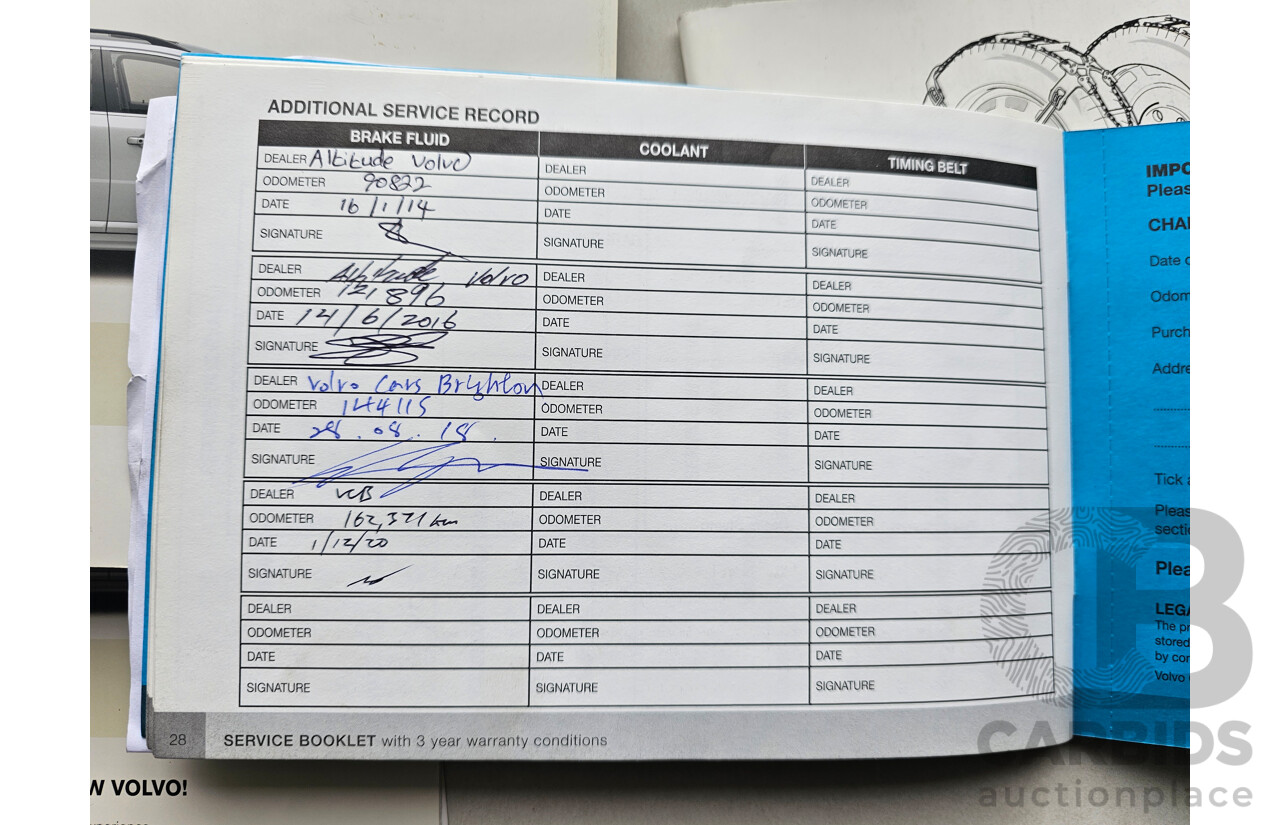 ADDITIONAL SERVICE RECORD
BRAKE FLUID COOLANT TIMING BELT
DEALER Altitude Volvo DEALER DEALER
ODOMETER 90822 ODOMETER ODOMETER
DATE 16/1/14 DATE DATE
SIGNATURE SIGNATURE SIGNATURE
DEALER Altitude Volvo DEALER DEALER
ODOMETER 121896 ODOMETER ODOMETER
DATE 14/6/2016 DATE DATE
SIGNATURE SIGNATURE SIGNATURE
DEALER Volvo Cars Brighton DEALER DEALER
ODOMETER 144115 ODOMETER ODOMETER
DATE 28.08.18. DATE DATE
SIGNATURE SIGNATURE SIGNATURE
DEALER VCB DEALER DEALER
ODOMETER 162,371 km ODOMETER ODOMETER
DATE 1/12/20 DATE DATE
SIGNATURE SIGNATURE SIGNATURE
DEALER DEALER DEALER
ODOMETER ODOMETER ODOMETER
DATE DATE DATE
SIGNATURE SIGNATURE SIGNATURE
28 SERVICE BOOKLET with 3 year warranty conditions
IMPO
Pleas
CHA
Date o
Odom
Purch
Addre
Tick a
Pleas
secti
Plea
LEGA
The pr
stored
by cor
Volvo
W VOLVO!
CARBIDS
auctionplace